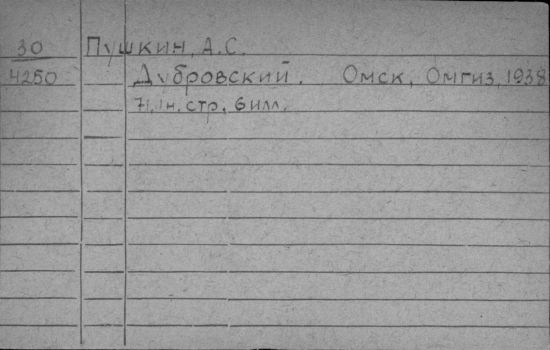 30 Пушкин, А.С.
4250 Дубровский. Омск, Омгиз, 1938
71, 1 н. стр., 6 илл.